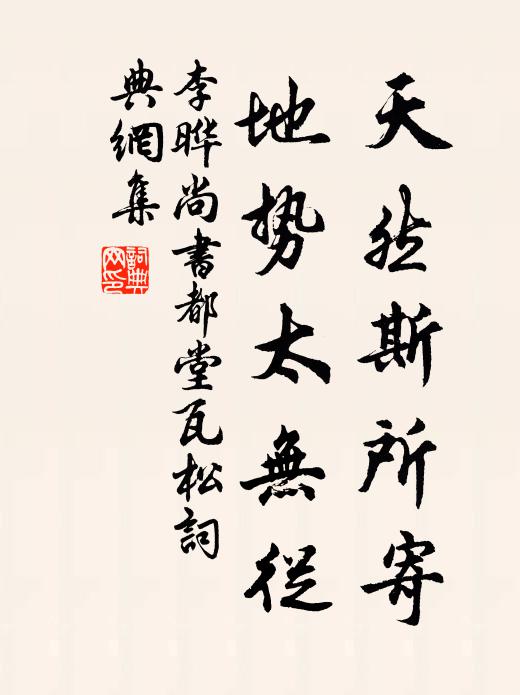 天然斯所寄
地势太無從
李晔尚書都堂瓦松詞
典網集
詞典
网印